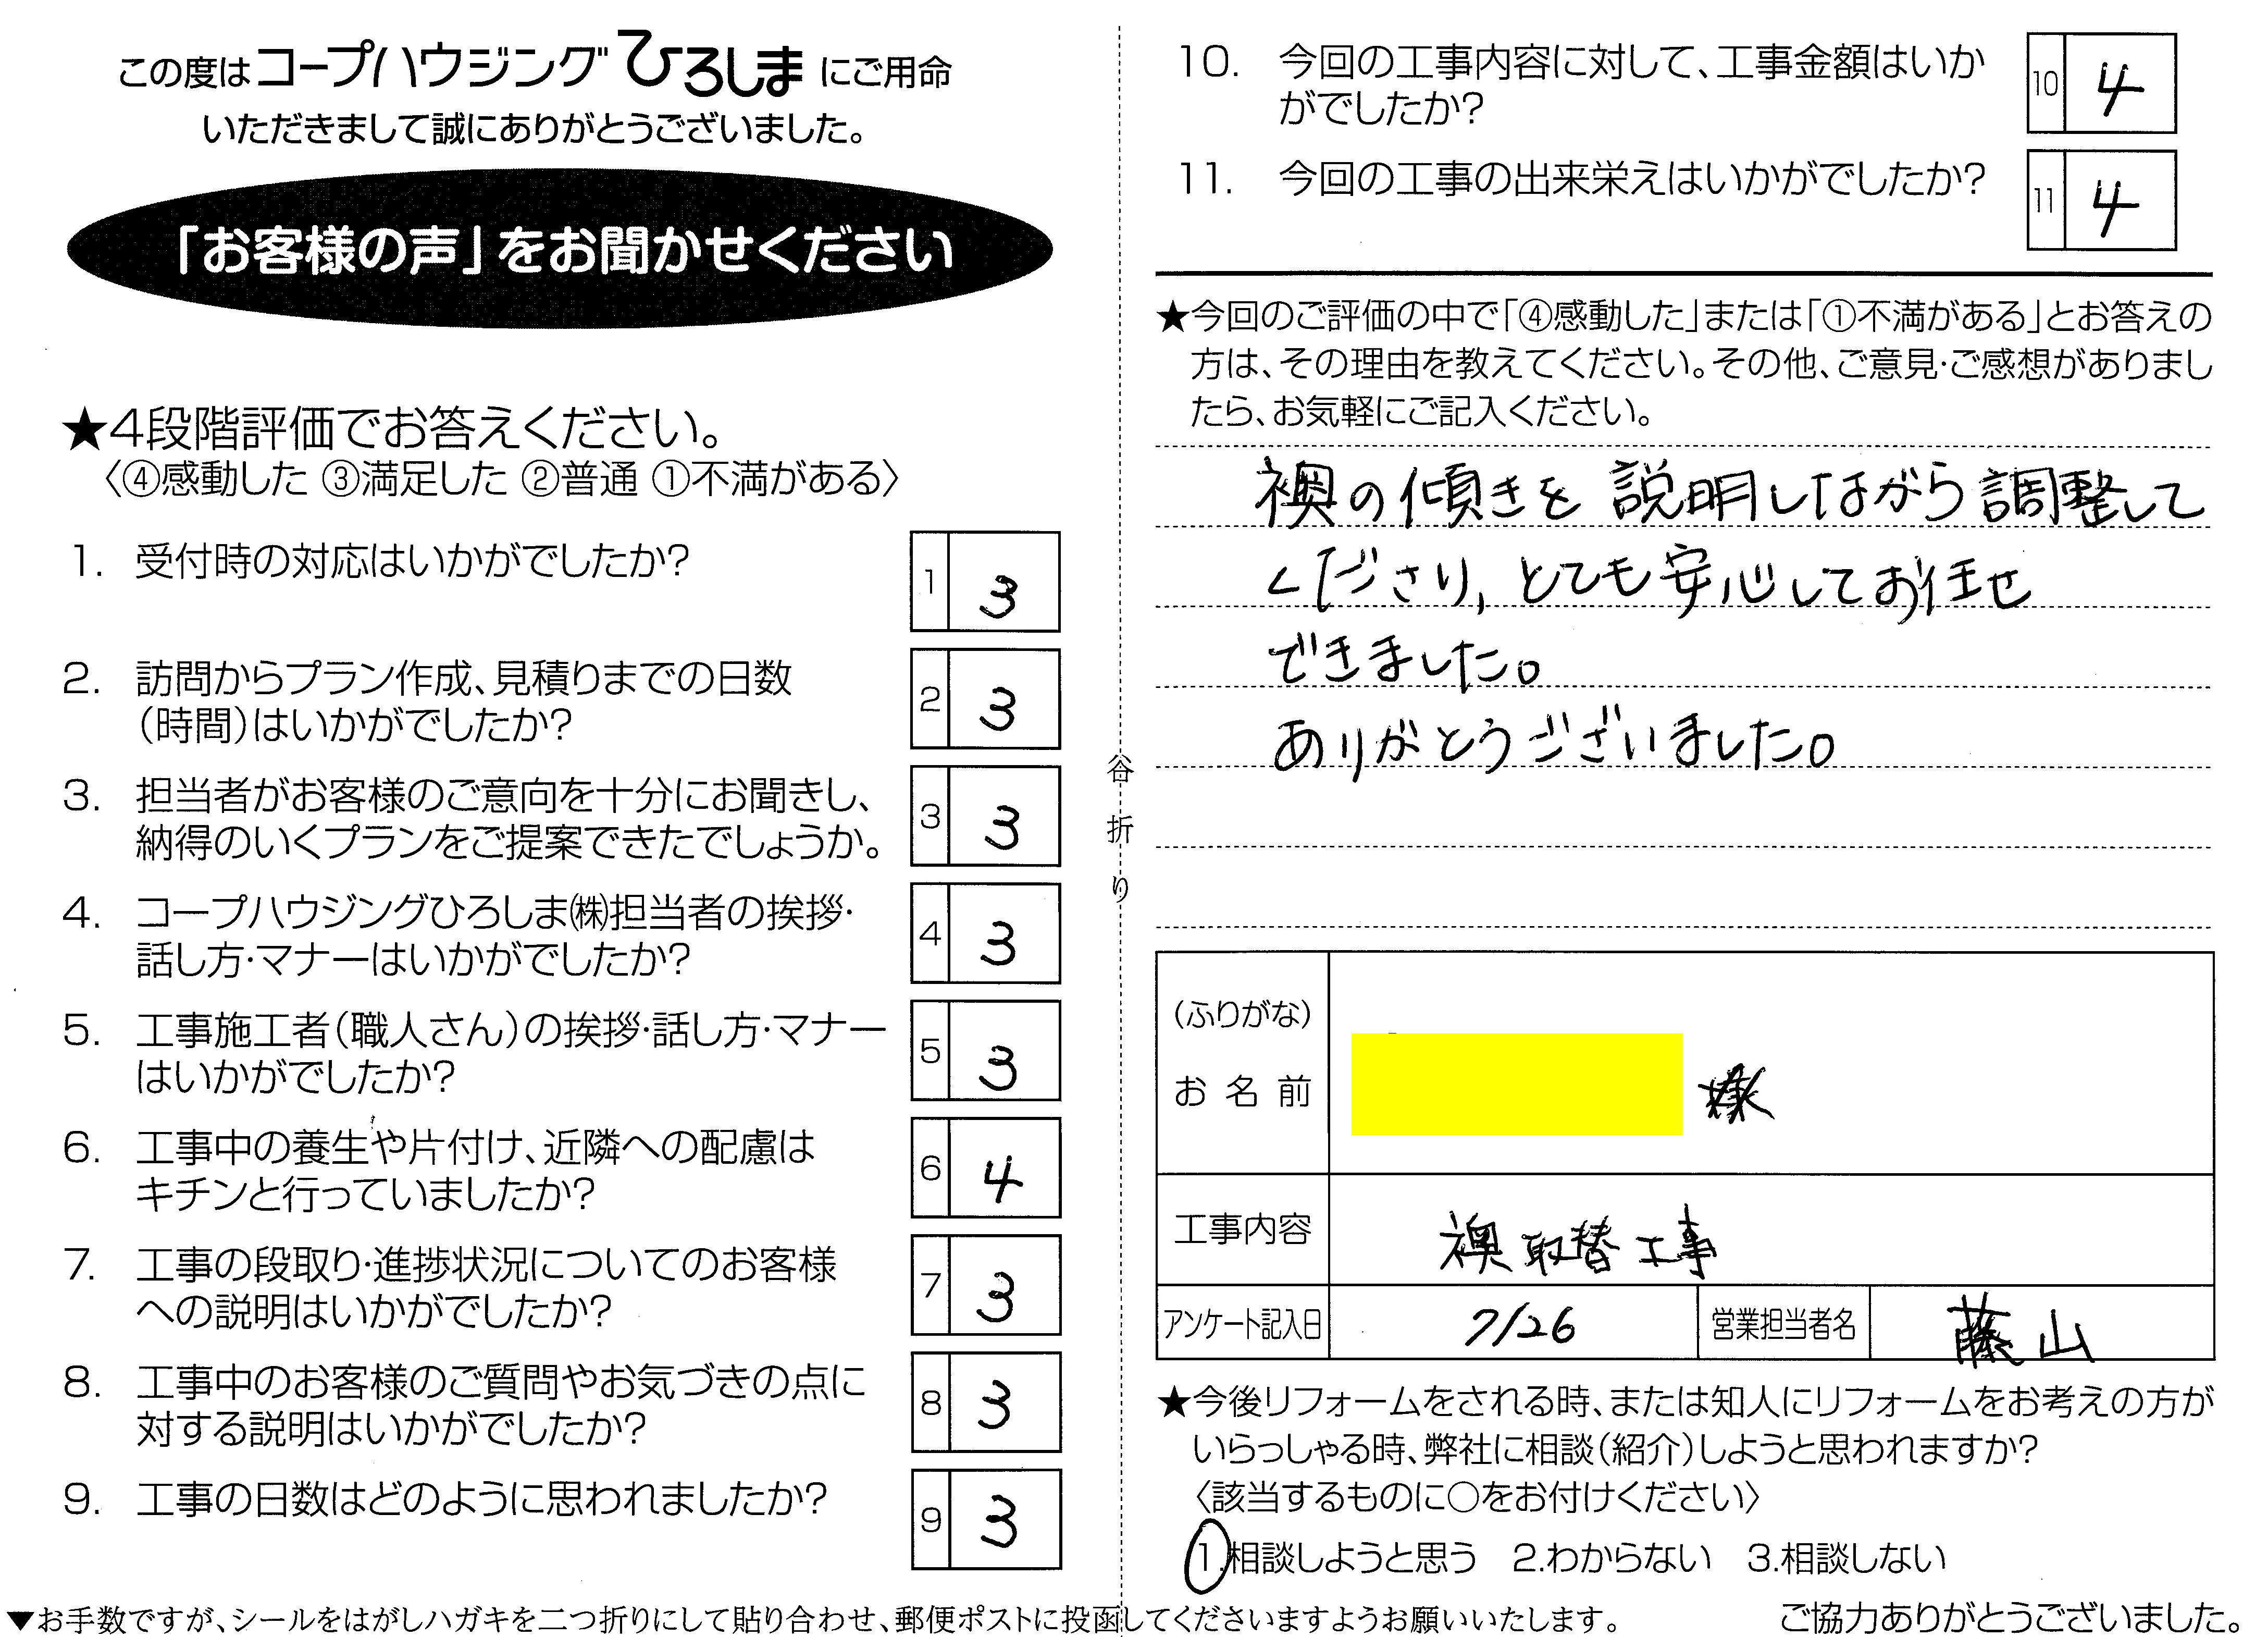 この度はコープハウジングひろしまにご用命
いただきまして誠にありがとうございました。
「お客様の声」をお聞かせください
★4段階評価でお答えください。
〈④感動した ③満足した ②普通 ①不満がある〉
1. 受付時の対応はいかがでしたか?
1 3
2. 訪問からプラン作成、見積りまでの日数
(時間)はいかがでしたか?
2 3
3. 担当者がお客様のご意向を十分にお聞きし、
納得のいくプランをご提案できたでしょうか。
3 3
4. コープハウジングひろしま㈱担当者の挨拶・
話し方・マナーはいかがでしたか?
4 3
5. 工事施工者(職人さん)の挨拶・話し方・マナー
はいかがでしたか?
5 3
6. 工事中の養生や片付け、近隣への配慮は
キチンと行っていましたか?
6 4
7. 工事の段取り・進捗状況についてのお客様
への説明はいかがでしたか?
7 3
8. 工事中のお客様のご質問やお気づきの点に
対する説明はいかがでしたか?
8 3
9. 工事の日数はどのように思われましたか?
9 3
谷折り
10. 今回の工事内容に対して、工事金額はいか
がでしたか?
10 4
11. 今回の工事の出来栄えはいかがでしたか?
11 4
★今回のご評価の中で「④感動した」または「①不満がある」とお答えの
方は、その理由を教えてください。その他、ご意見・ご感想がありまし
たら、お気軽にご記入ください。
襖の傾きを説明しながら調整して
くださり、とても安心してお任せ
できました。
ありがとうございました。
(ふりがな)
お名前 様
工事内容 襖取替工事
アンケート記入日 7/26 営業担当者名 藤山
★今後リフォームをされる時、または知人にリフォームをお考えの方が
いらっしゃる時、弊社に相談(紹介)しようと思われますか?
〈該当するものに○をお付けください〉
1.相談しようと思う 2.わからない 3.相談しない
▼お手数ですが、シールをはがしハガキを二つ折りにして貼り合わせ、郵便ポストに投函してくださいますようお願いいたします。
ご協力ありがとうございました。